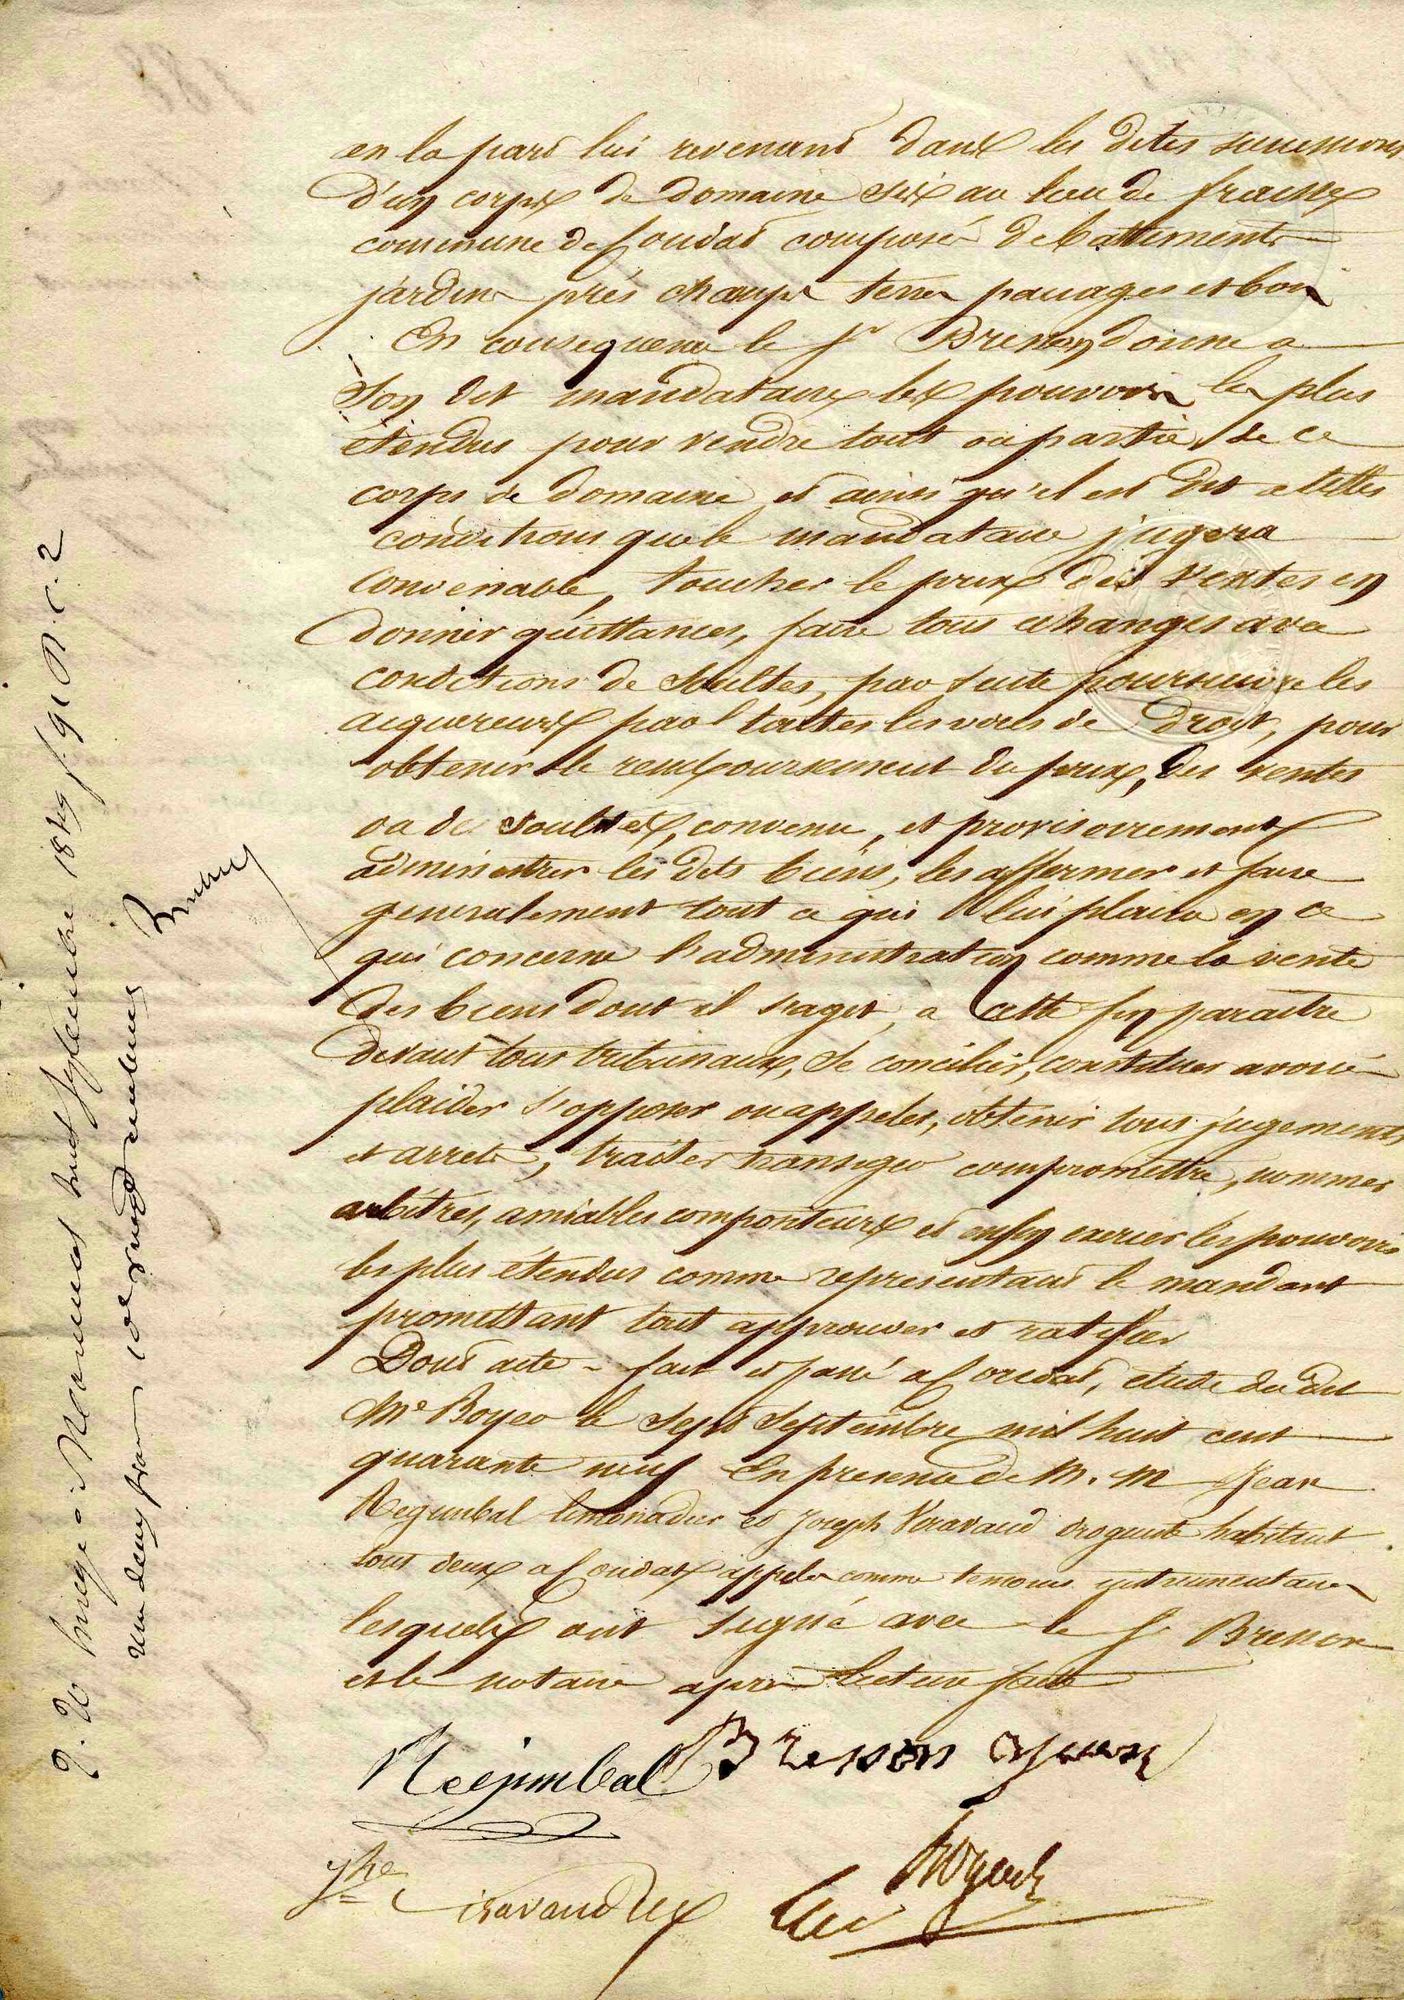 en la part lui revenant dans les dites successions
d'un corps de domaine sis au lieu de fraisse
commune de Condat composé de battiments
jardin prés champs terres pacages et bois
En consequence le Sr Bresson donne a
Son dit mandataire les pouvoirs les plus
étendus pour vendre tout ou partie de ce
corps de domaine et ainsi qu'il est dit a telles
conditions que le mandataire jugera
convenable, toucher le prix des ventes en
donner quittances, faire tous echanges avec
conditions de soultes, par suite poursuivre les
acquereurs par toutes les voies de droit, pour
obtenir le remboursement du prix, des ventes
ou de soultes, convenu, et provisoirement
administrer les dits biens, les affermer et faire
generalement tout ce qui lui plaira en ce
qui concerne l'administration comme la vente
des biens dont il s'agit, a cette fin paraitre
devant tous tribunaux, se concilier, constituer avoué
plaider s'opposer ou appeler, obtenir tous jugements
et arrets, traiter transiger compromettre, nommer
arbitres, amiables compositeurs et enfin exercer les pouvoirs
les plus étendus comme representant le mandant
promettant tout approuver et ratifier
Dont acte - fait et passé a Condat, etude du dit
Me Boyer le sept septembre mil huit cent
quarante neuf En presence de M. M Jean
Rejimbal limonadier et Joseph Veravaud droguiste habitant
tous deux a Condat appeles comme temoins instrumentaires
lesquels ont signé avec le Sr Bresson
et le notaire apres lecture faite
Rejimbal Bresson
Jhe
Enregé a Marcenat huit septembre 1849 f. 91 R. c. 2
reçu deux francs 10e vingt centimes